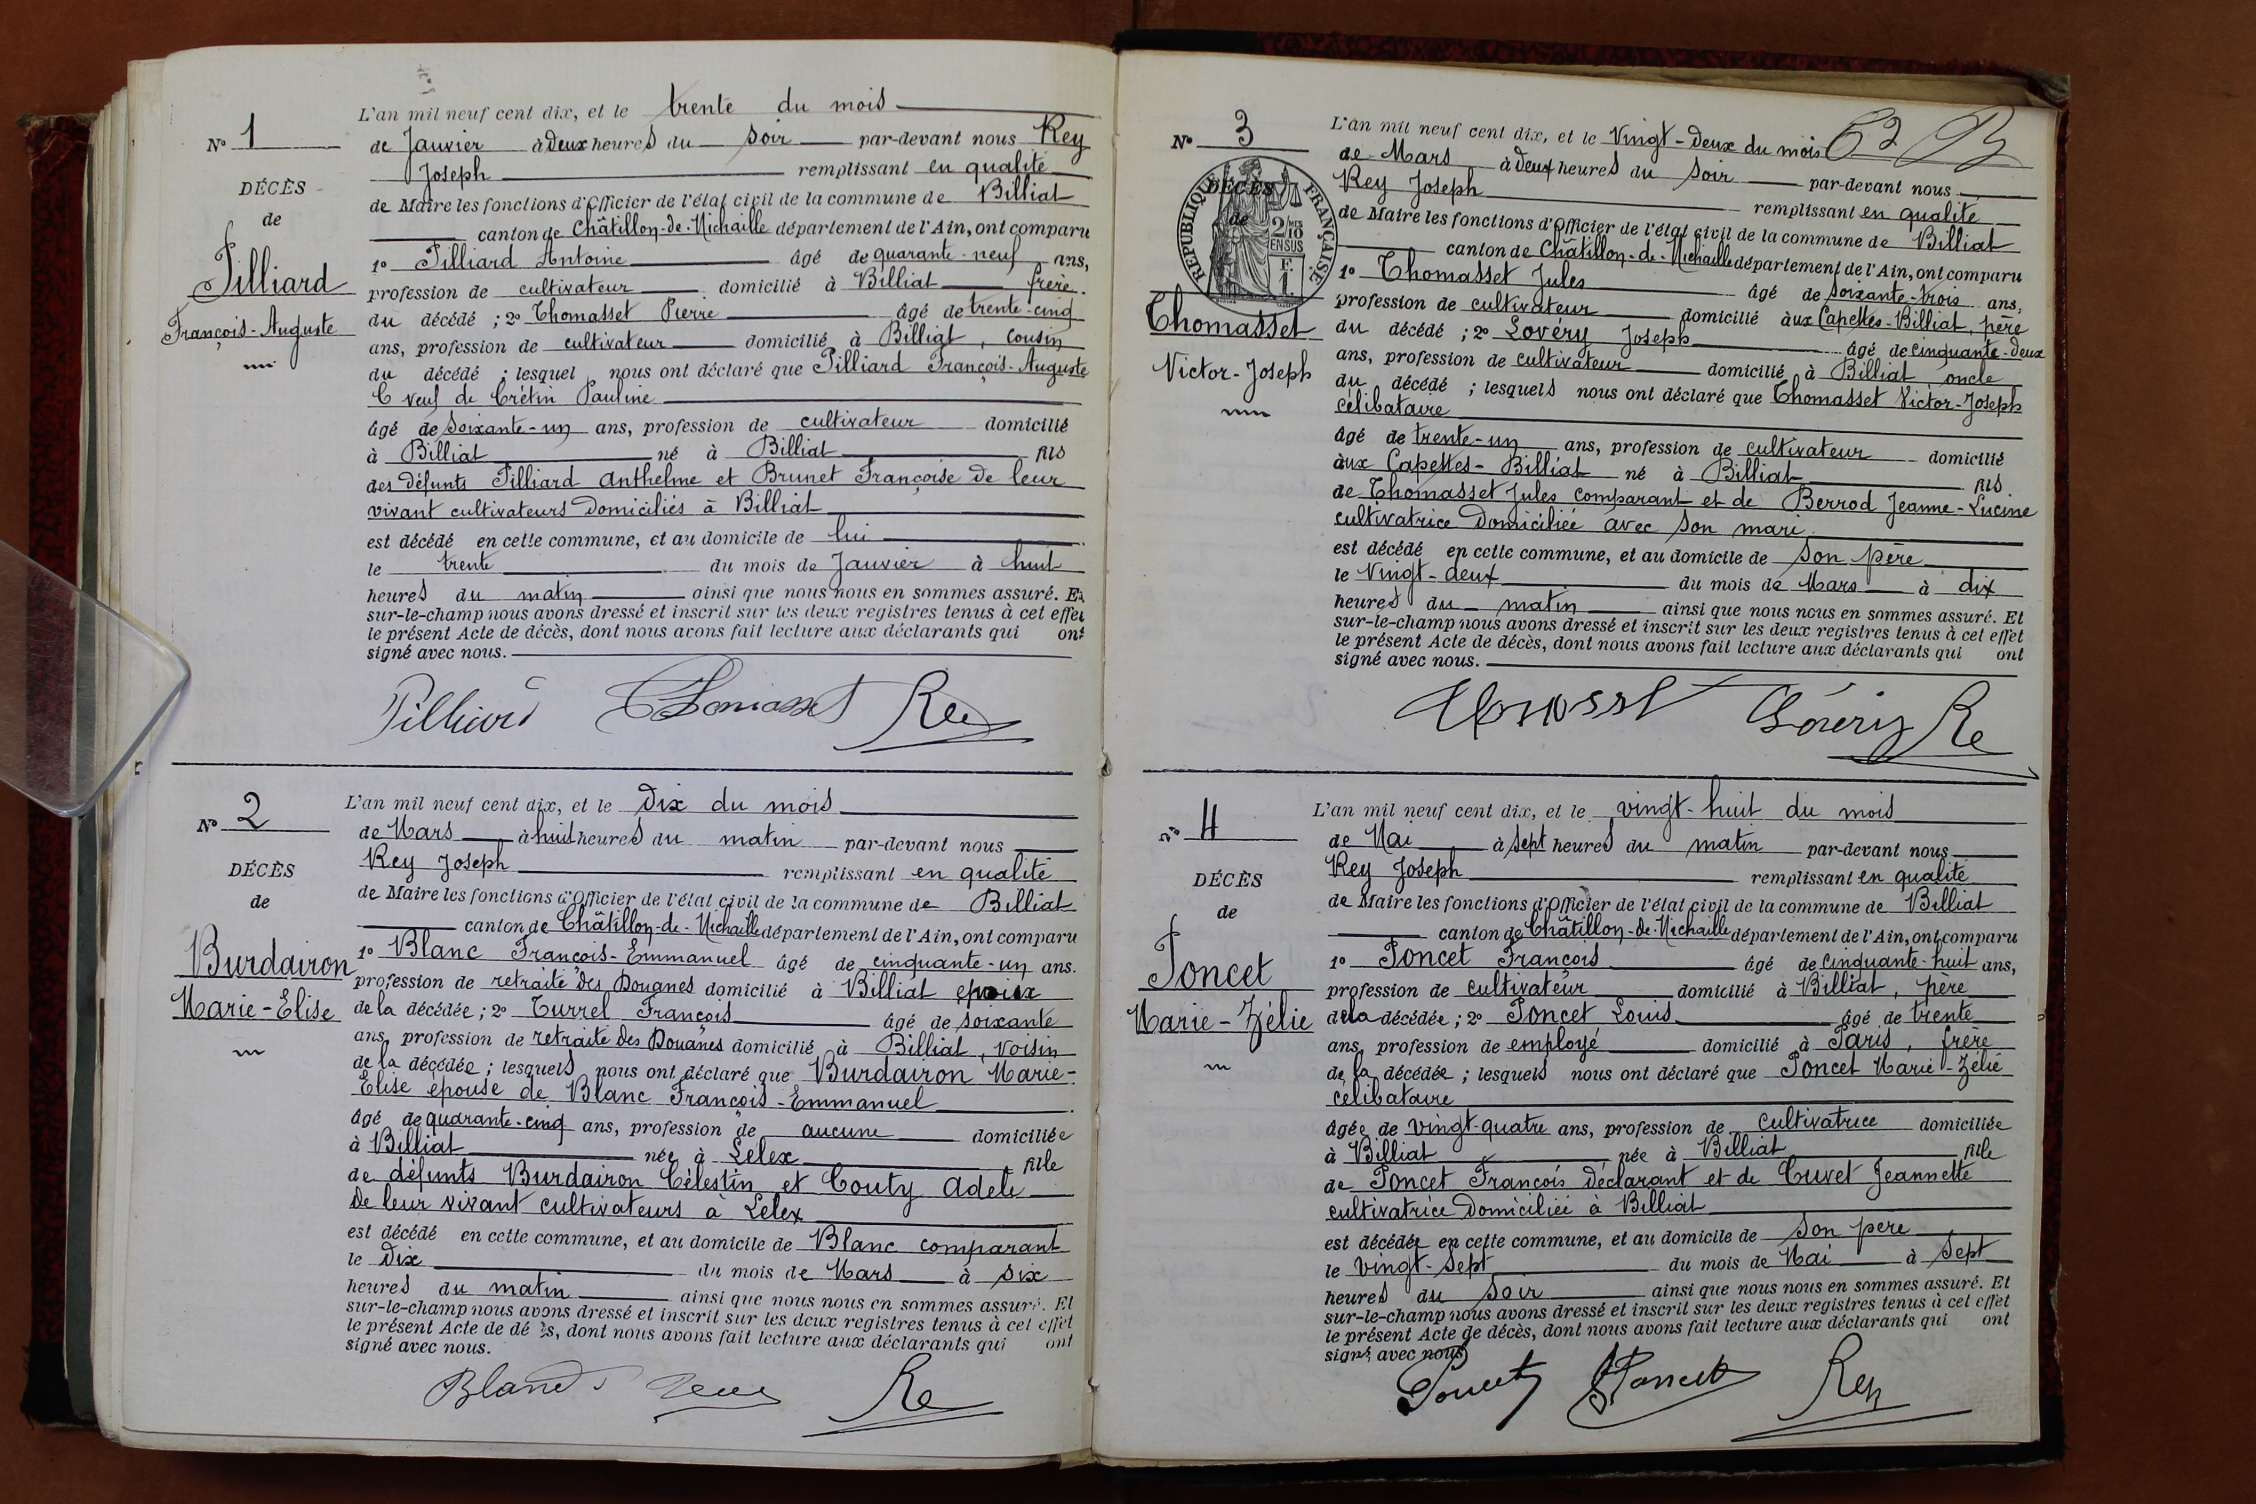 N° 1
DÉCÈS
de
Pilliard
François-Auguste
L'an mil neuf cent dix, et le trente du mois
de Janvier à deux heures du soir par-devant nous Rey
Joseph remplissant en qualité
de Maire les fonctions d'Officier de l'état civil de la commune de Billiat
canton de Châtillon-de-Michaille département de l'Ain, ont comparu
1° Pilliard Antoine âgé de quarante-neuf ans,
profession de cultivateur domicilié à Billiat frère
du décédé ; 2° Thomasset Pierre âgé de trente-cinq
ans, profession de cultivateur domicilié à Billiat, cousin
du décédé ; lesquel nous ont déclaré que Pilliard François-Auguste
veuf de Crétin Pauline
âgé de soixante-un ans, profession de cultivateur domicilié
à Billiat né à Billiat fils
des défunts Pilliard Anthelme et Brunet Françoise de leur
vivant cultivateurs domiciliés à Billiat
est décédé en cette commune, et au domicile de lui
le trente du mois de Janvier à huit
heures du matin ainsi que nous nous en sommes assuré. Et
sur-le-champ nous avons dressé et inscrit sur les deux registres tenus à cet effet
le présent Acte de décès, dont nous avons fait lecture aux déclarants qui ont
signé avec nous.
Pilliard Thomasset Rey
N° 2
DÉCÈS
de
Burdairon
Marie-Elise
L'an mil neuf cent dix, et le dix du mois
de Mars à huit heures du matin par-devant nous
Rey Joseph remplissant en qualité
de Maire les fonctions d'Officier de l'état civil de la commune de Billiat
canton de Châtillon-de-Michaille département de l'Ain, ont comparu
1° Blanc François-Emmanuel âgé de cinquante-un ans.
profession de retraité des Douanes domicilié à Billiat époux
de la décédée ; 2° Turrel François âgé de soixante
ans, profession de retraité des Douanes domicilié à Billiat, voisin
de la décédée ; lesquels nous ont déclaré que Burdairon Marie-
Elise épouse de Blanc François-Emmanuel
âgé de quarante-cinq ans, profession de aucune domiciliée
à Billiat née à Lelex fille
de défunts Burdairon Célestin et Couty Adèle
de leur vivant cultivateurs à Lelex
est décédé en cette commune, et au domicile de Blanc comparant
le dix du mois de Mars à six
heures du matin ainsi que nous nous en sommes assuré. Et
sur-le-champ nous avons dressé et inscrit sur les deux registres tenus à cet effet
le présent Acte de décès, dont nous avons fait lecture aux déclarants qui ont
signé avec nous.
Blanc Re
N° 3
DÉCÈS
de
RÉPUBLIQUE FRANÇAISE
2/10
EN SUS
Thomasset
Victor-Joseph
L'an mil neuf cent dix, et le vingt-deux du mois 62
de Mars à deux heures du soir par-devant nous
Rey Joseph remplissant en qualité
de Maire les fonctions d'Officier de l'état civil de la commune de Billiat
canton de Châtillon-de-Michaille département de l'Ain, ont comparu
1° Thomasset Jules âgé de soixante-trois ans,
profession de cultivateur domicilié aux Capettes-Billiat, père
du décédé ; 2° Lovéry Joseph âgé de cinquante-deux
ans, profession de cultivateur domicilié à Billiat oncle
du décédé ; lesquels nous ont déclaré que Thomasset Victor-Joseph
célibataire
âgé de trente-un ans, profession de cultivateur domicilié
aux Capettes-Billiat né à Billiat fils
de Thomasset Jules comparant et de Berrod Jeanne-Lucine
cultivatrice domiciliée avec son mari
est décédé en cette commune, et au domicile de son père
le vingt-deux du mois de Mars à dix
heures du matin ainsi que nous nous en sommes assuré. Et
sur-le-champ nous avons dressé et inscrit sur les deux registres tenus à cet effet
le présent Acte de décès, dont nous avons fait lecture aux déclarants qui ont
signé avec nous.
Lovéry Re
N° 4
DÉCÈS
de
Poncet
Marie-Zélie
L'an mil neuf cent dix, et le vingt-huit du mois
de Mai à sept heures du matin par-devant nous
Rey Joseph remplissant en qualité
de Maire les fonctions d'Officier de l'état civil de la commune de Billiat
canton de Châtillon-de-Michaille département de l'Ain, ont comparu
1° Poncet François âgé de cinquante-huit ans,
profession de cultivateur domicilié à Billiat, père
de la décédée ; 2° Poncet Louis âgé de trente
ans, profession de employé domicilié à Paris, frère
de la décédée ; lesquels nous ont déclaré que Poncet Marie-Zélie
célibataire
âgée de vingt-quatre ans, profession de cultivatrice domiciliée
à Billiat née à Billiat fille
de Poncet François déclarant et de Cuvet Jeannette
cultivatrice domiciliée à Billiat
est décédée en cette commune, et au domicile de son père
le vingt-sept du mois de Mai à sept
heures du soir ainsi que nous nous en sommes assuré. Et
sur-le-champ nous avons dressé et inscrit sur les deux registres tenus à cet effet
le présent Acte de décès, dont nous avons fait lecture aux déclarants qui ont
signé avec nous
Poncet Poncet Rey